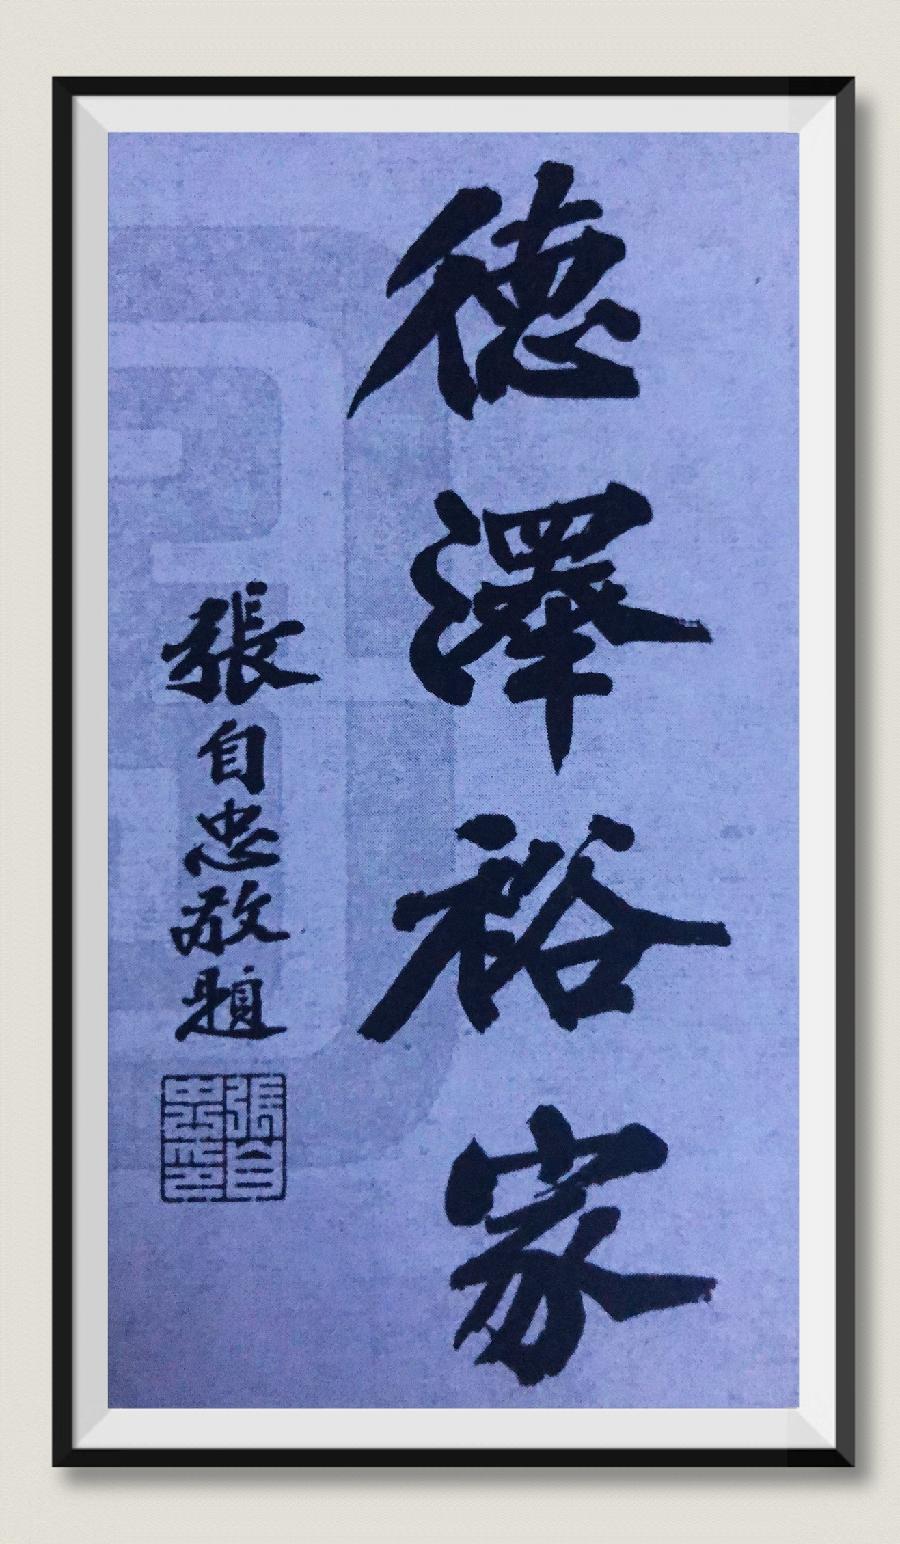 德澤裕家
張自忠敬題
張自忠印